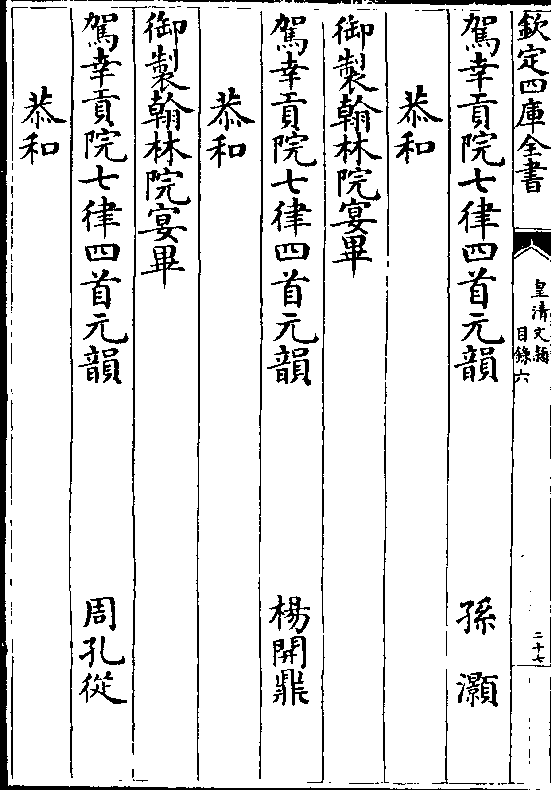 欽定四庫全書
皇清文穎
目錄六
二十七
駕幸貢院七律四首元韻 孫灝
恭和
御製翰林院宴畢
駕幸貢院七律四首元韻 楊開鼎
恭和
御製翰林院宴畢
駕幸貢院七律四首元韻 周孔從
恭和